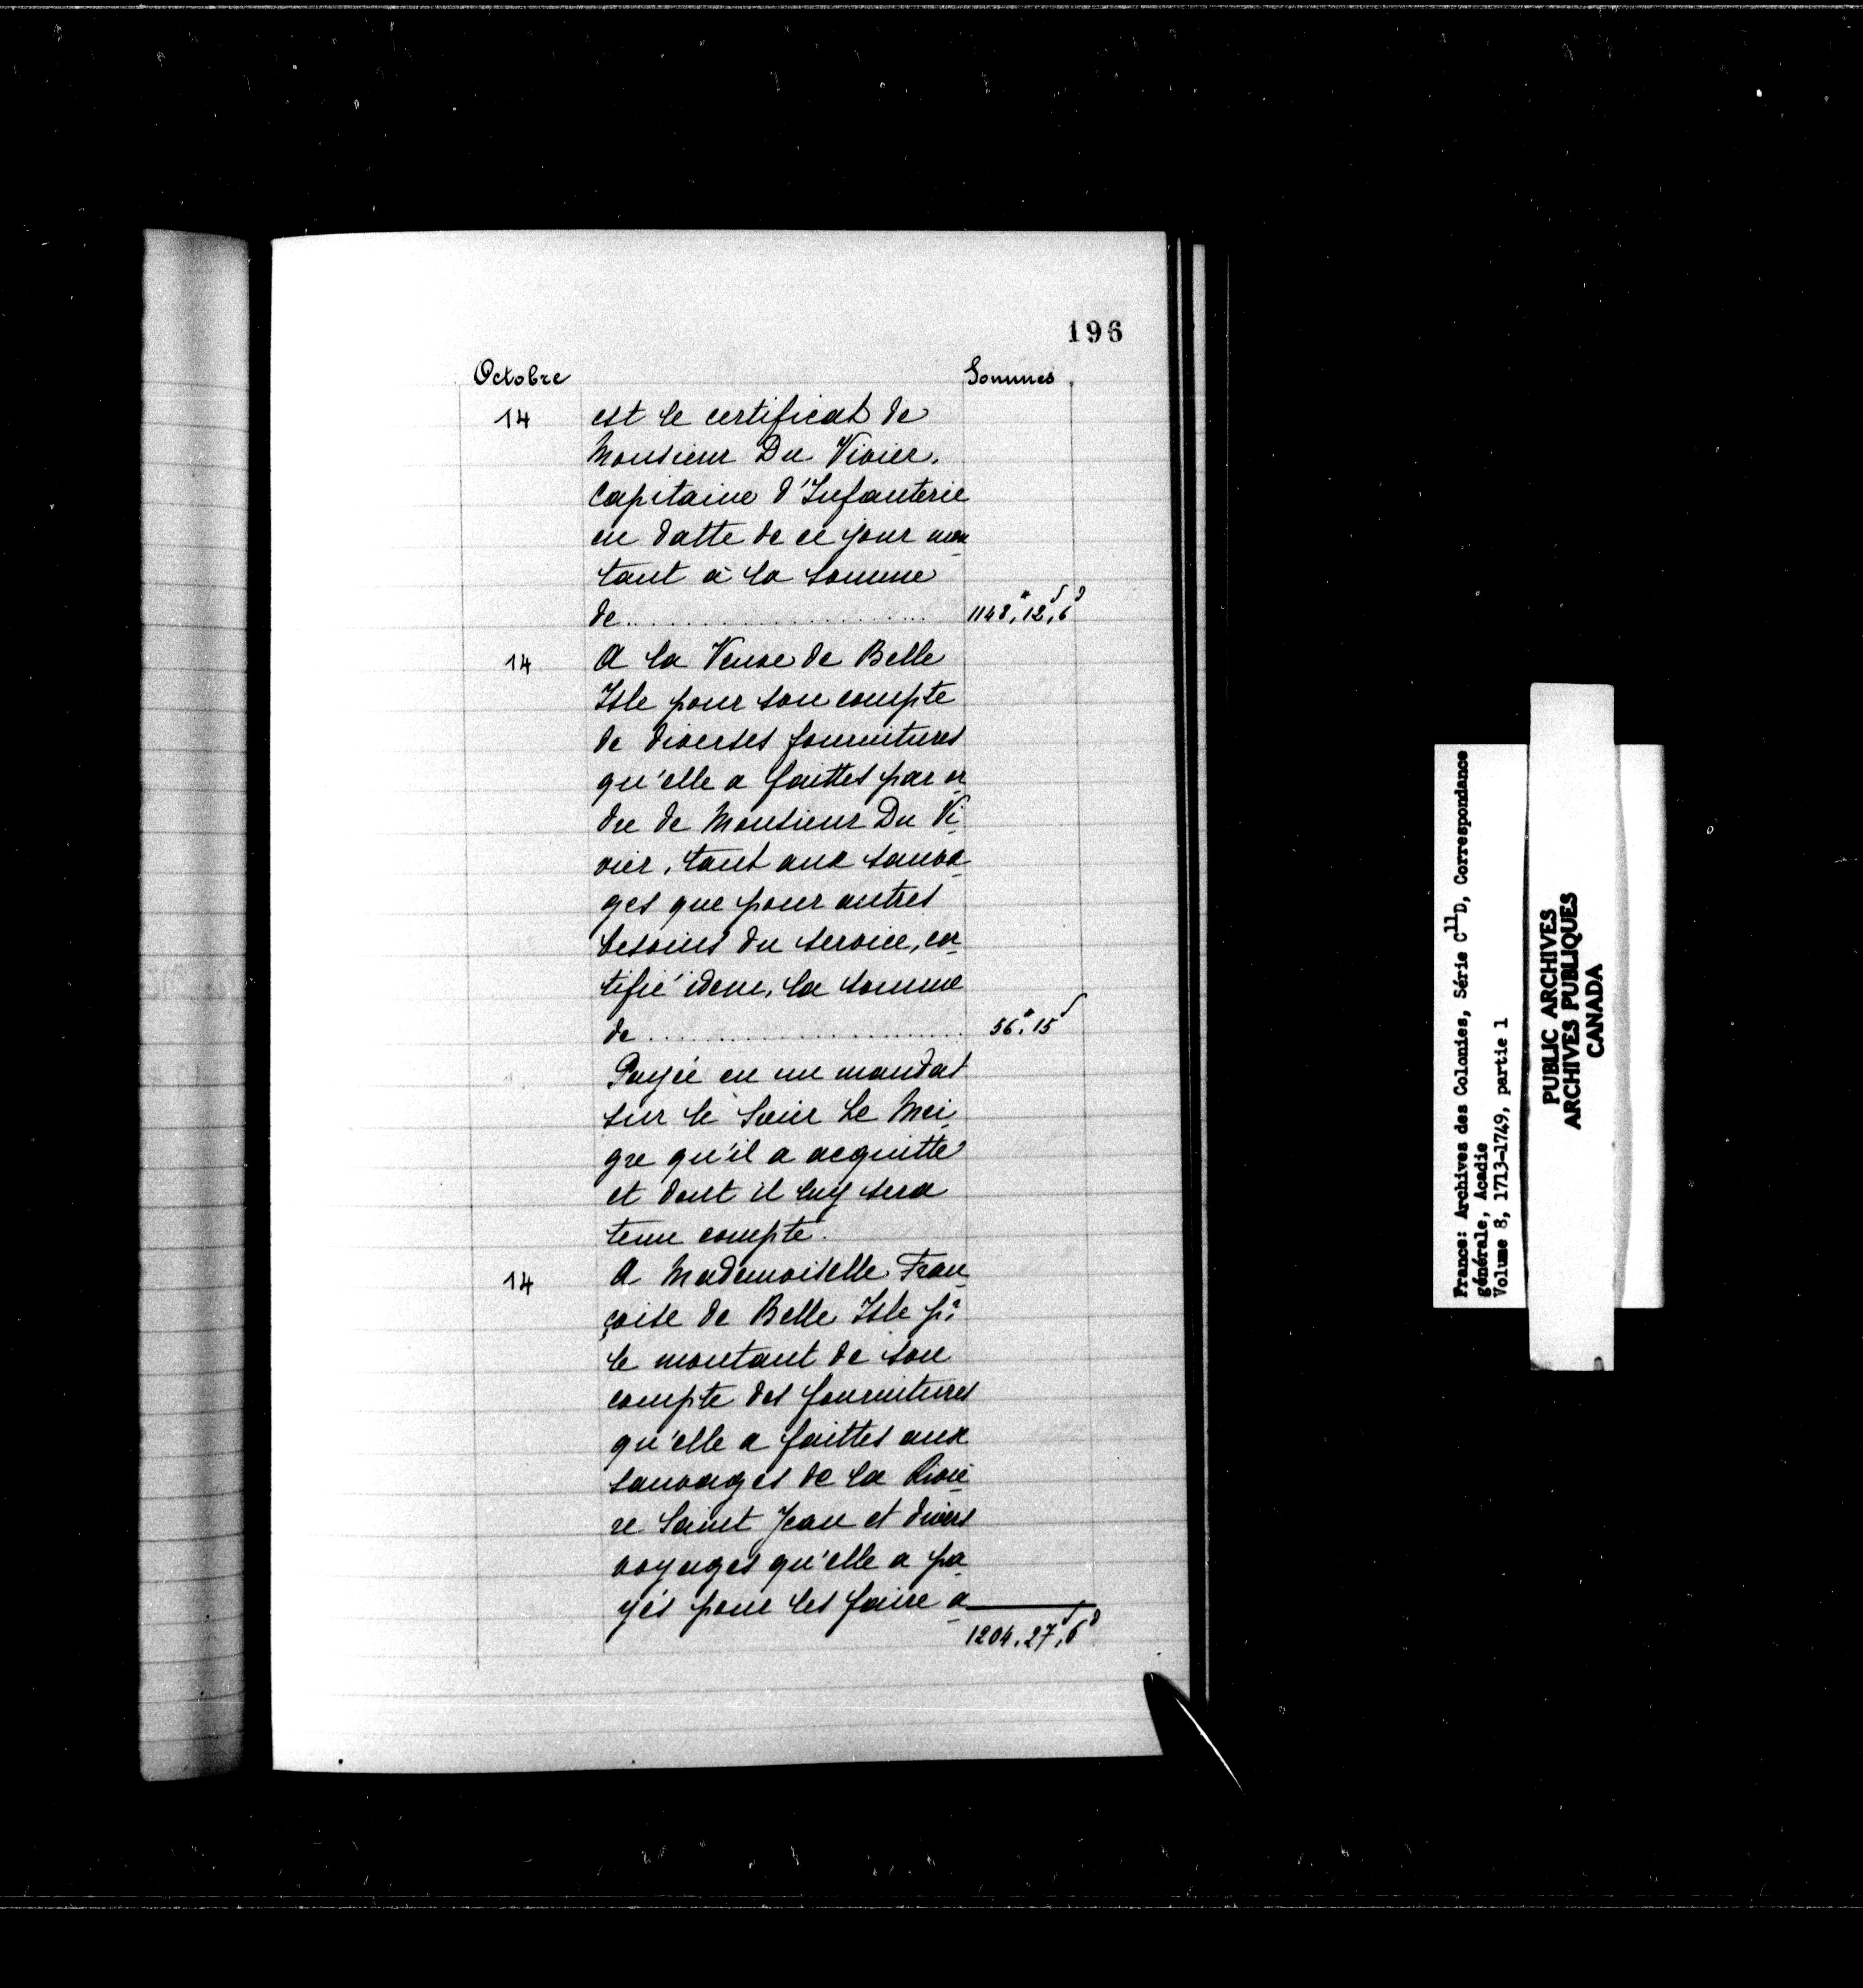 196
Octobre Sommes
14 est le certificat de
Monsieur Du Vivier,
Capitaine d'Infanterie
en datte de ce jour mon
tant à la somme
de.......................... 1148.# 12.s 6d
14 A la Veuve de Belle
Isle pour son compte
de diverses fournitures
qu'elle a faittes par or
dre de Monsieur Du Vi
vier, tant aux sauva
ges que pour autres
besoins du service, cer
tifié idem, la somme
de.......................... 56.# 15s
Payée en un mandat
sur le Sieur Le Mei
gre qu'il a acquitté
et dont il luy sera
tenu compte.
14 A Mademoiselle Fran
çoise de Belle Isle pr.
le montant de son
compte des fournitures
qu'elle a faittes aux
sauvages de la Riviè
re Saint Jean et divers
voyages qu'elle a pa
yés pour les faire a
1204.27s.6d
France: Archives des Colonies, Série C11D, Correspondance
générale, Acadie
Volume 8, 1713-1749, partie 1
PUBLIC ARCHIVES
ARCHIVES PUBLIQUES
CANADA